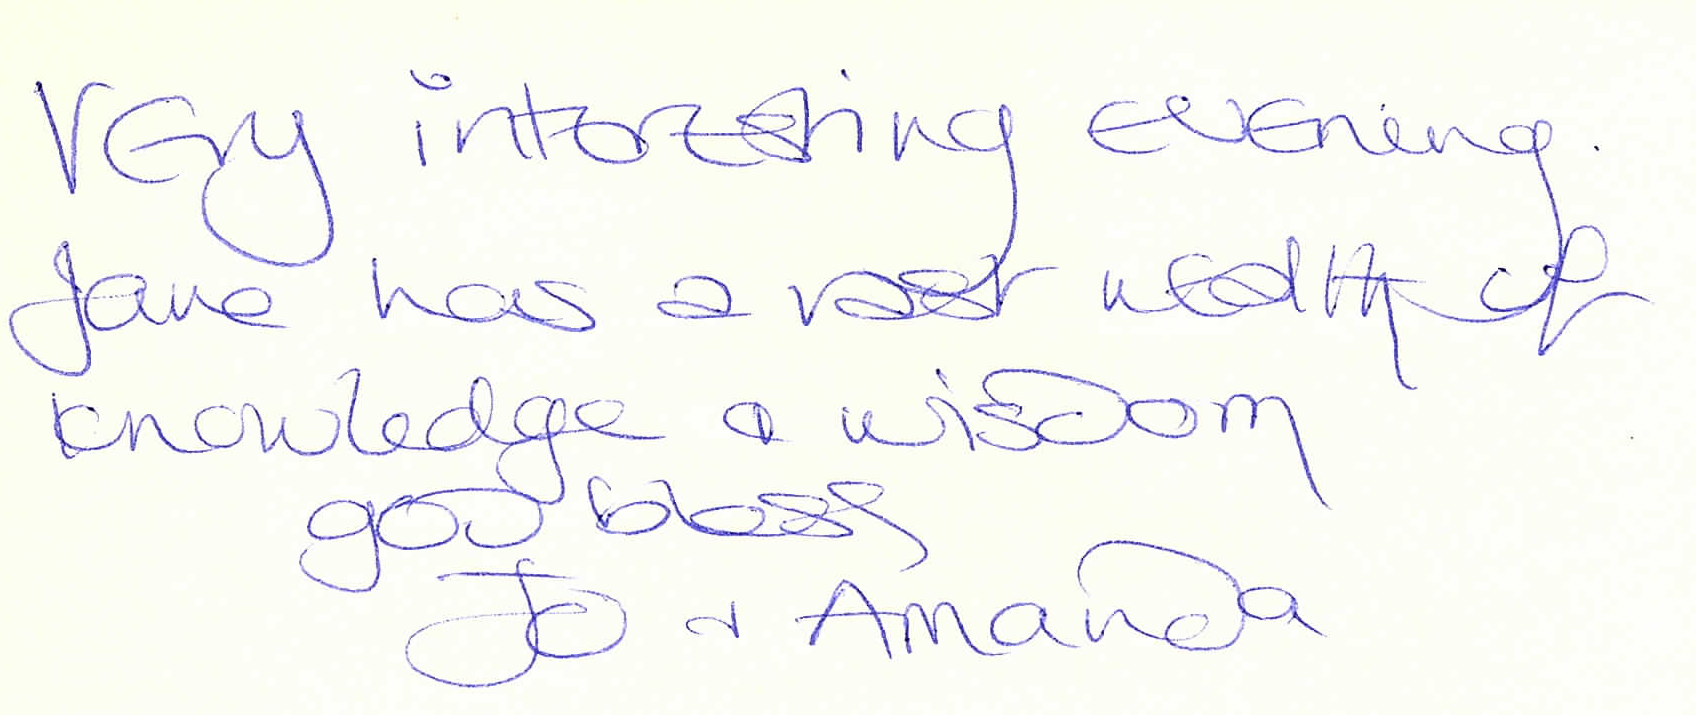 Very interesting evening.
Jane has a vast wealth of
knowledge & wisdom
god bless
Jo & Amanda